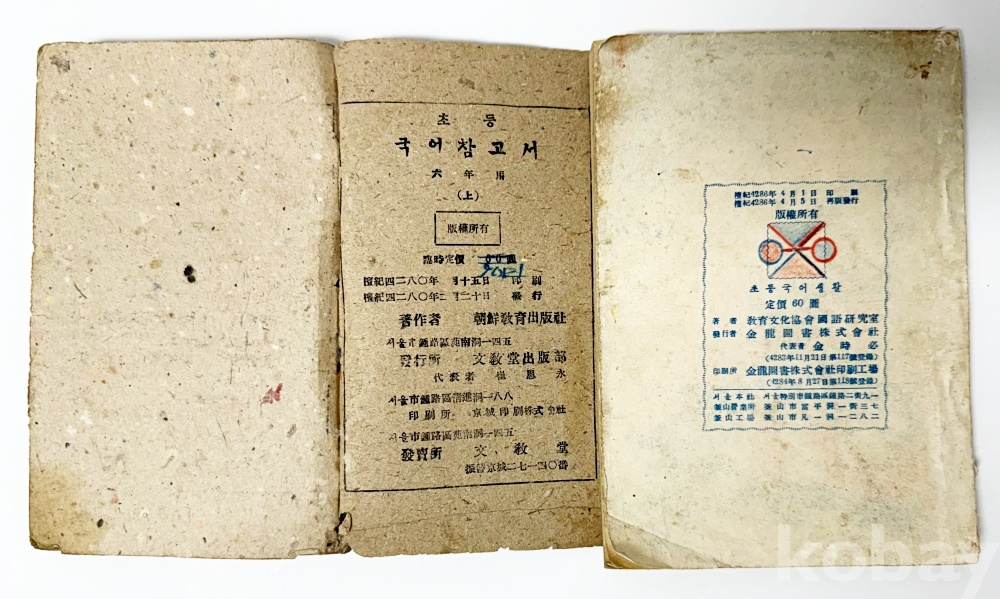 초등
국어참고서
六年用
(上)
版權所有
臨時定價 00圓
檀紀四二八〇年 月十五日 印刷
檀紀四二八〇年二月二十日 發行
著作者 朝鮮敎育出版社
서울市鍾路區 南洞一四五
發行所 文敎堂出版部
代表者 崔恩永
서울市鍾路區 洞一八八
印刷所 京城印刷株式會社
서울市鍾路區 南洞一四五
發賣所 文敎堂
振替京城二七一四〇番
檀紀4286年4月1日 印刷
檀紀4286年4月5日 再版發行
版權所有
초등국어생활
定價 60圜
著者 敎育文化協會國語硏究室
發行者 金龍圖書株式會社
代表者 金時必
(4283年11月21日第117號登錄)
印刷所 金龍圖書株式會社印刷工場
(4284年8月27日第118號登錄)
서울本社 서울特別市鍾路區鍾路二街九一
釜山營業所 釜山市富平洞一街三七
釜山工場 釜山市凡一洞一二八二
kobay